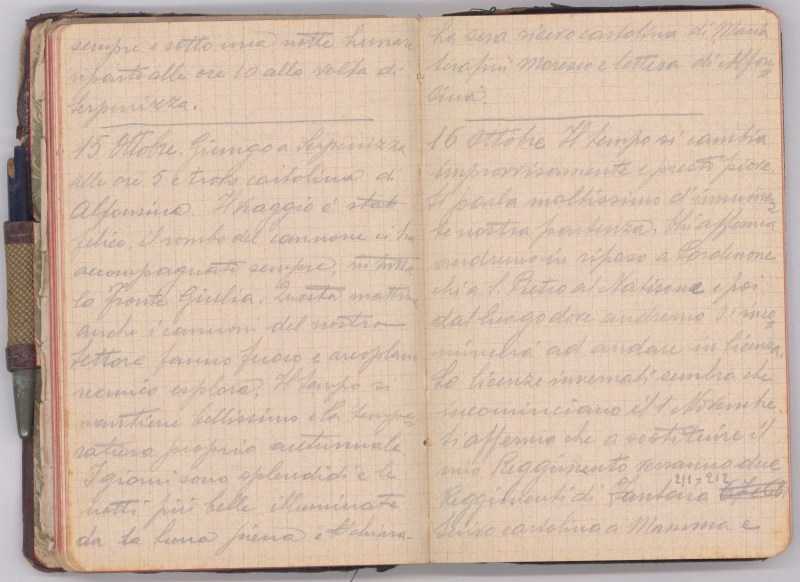 sempre e sotto una notte lunare
riparto alle ore 10 alla volta di
Serpenizza.
15 Ottobre. Giungo a Serpenizza
alle ore 5 e trovo cartolina di
Alfonsina. Il viaggio è stat
felice, il rombo del cannone ci ha
accompagnati sempre, in tutta
la Fronte Giulia. Questa mattina
anche i cannoni del nostro
settore fanno fuoco e areoplani
nemico esplora. Il tempo si
mantiene bellissimo e la tempe=
ratura proprio autunnale
I giorni sono splendidi e le
notti più belle illuminate
da la luna piena e chiara.
La sera ricevo cartolina di Maria
Serafini Moresco e lettera di Alfon=
sina.
16 Ottobre Il tempo si cambia
improvvisamente e presto piove.
Si parla moltissimo d'imminen=
te nostra partenza. Chi afferma
andremo in riposo a Pordenone
chi a S. Pietro al Natisone e poi
dal luogo dove andremo si inco=
mincerà ad andare in licenza.
Le licenze invernali sembra che
incominciano il 1 Novembre.
Si afferma che a sostituire il
mio Reggimento verranno due
Reggimenti di Fanteria 211=212
Scrivo cartolina a Mamma e